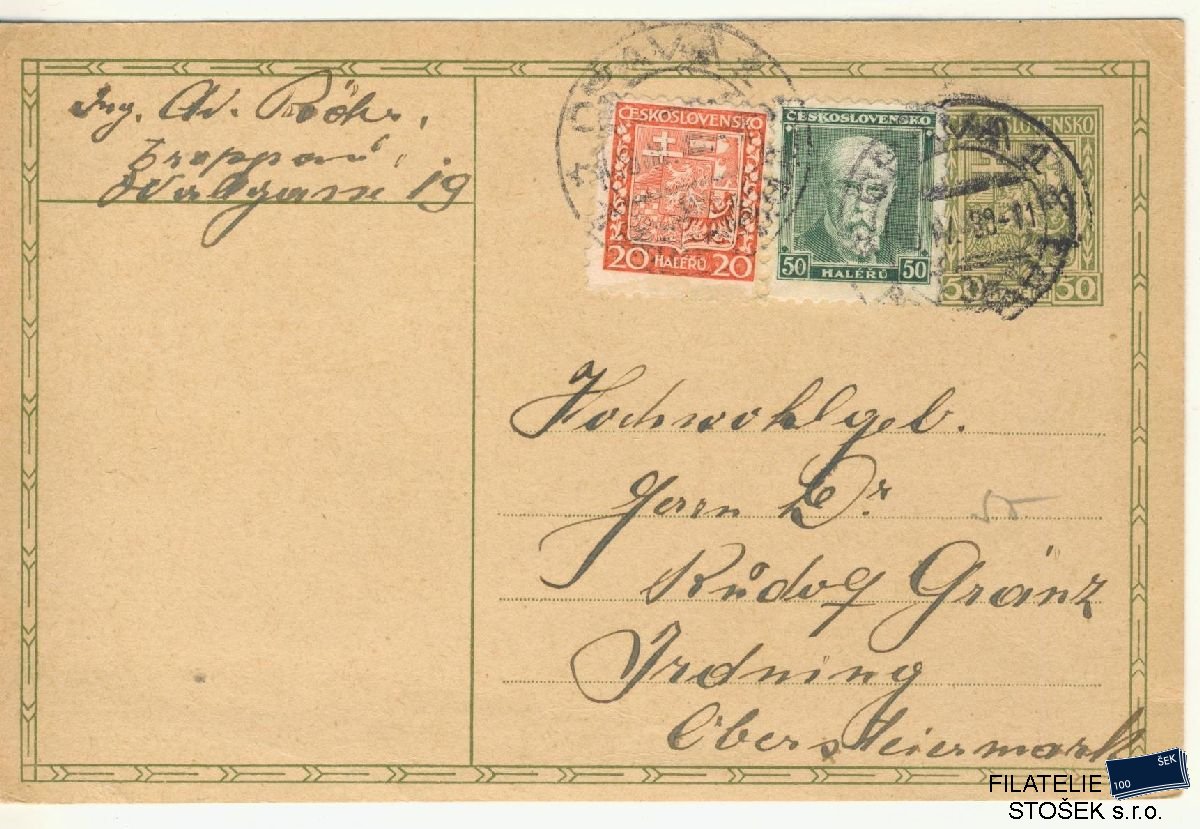 Ing. Ad. Röhr,
Troppau,
19
OPAVA 1
ČESKOSLOVENSKO
20 HALÉŘŮ 20
ČESKOSLOVENSKO
50 HALÉŘŮ 50
ČESKOSLOVENSKO
50 50
Hochwohlgeb.
Herrn Dr
Rudolf Gränz
Irdning
Obersteiermark
FILATELIE
STOŠEK s.r.o.
100 ŠEK